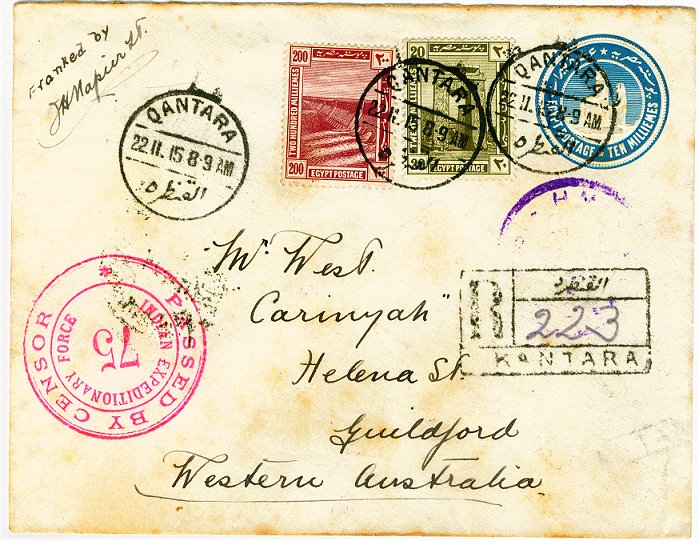 Franked by
JHNapier Lt.
QANTARA
22 II. 15 8-9 AM
القنطرة
200 ٢٠٠
TWO HUNDRED MILLIEMES
200
EGYPT POSTAGE
20 ٢٠
EGYPT POSTAGE
QANTARA
22 II. 15 8-9 AM
QANTARA
22 II. 15 8-9 AM
القنطرة
EGYPT POSTAGE · TEN MILLIEMES
H M
PASSED BY CENSOR
INDIAN EXPEDITIONARY FORCE
75
Mr. West.
"Carinyah"
Helena St.
Guildford
Western Australia
R
القنطرة
223
KANTARA